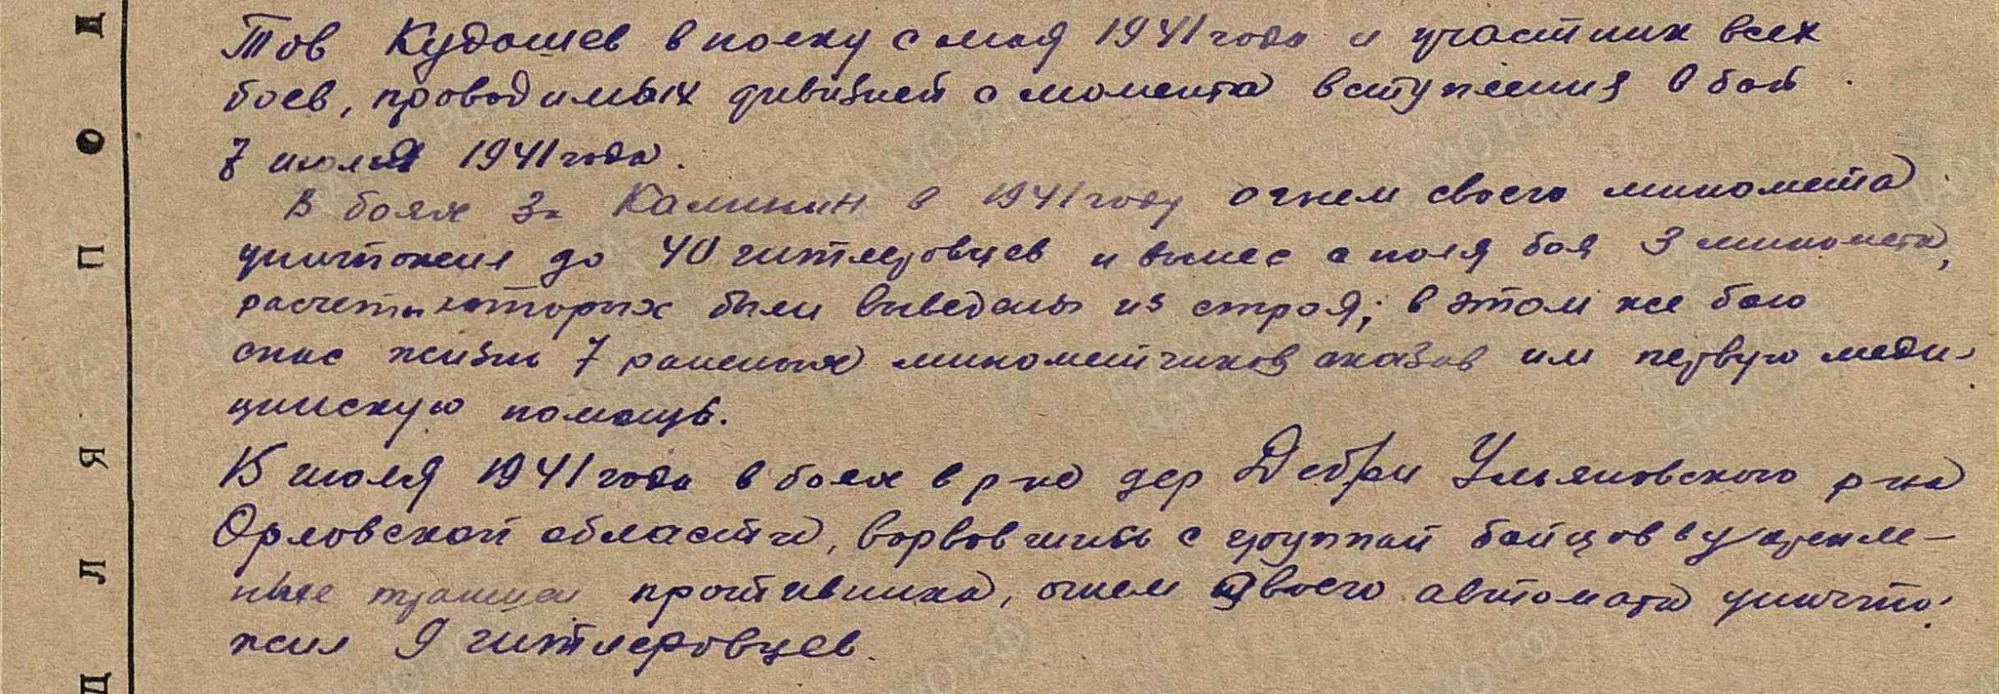 Тов Кудашев в полку с мая 1941 года и участник всех
боев, проводимых дивизией с момента вступления в бой
7 июля 1941 года.
В боях за Калинин в 1941 году огнем своего миномета
уничтожил до 40 гитлеровцев и вынес с поля боя 3 миномета,
расчеты которых были выведены из строя; в этом же бою
спас жизнь 7 раненых минометчиков оказав им первую меди-
цинскую помощь.
15 июля 1941 года в боях в р-не дер Дебри Ульяновского р-на
Орловской области, ворвовшись с группой бойцов в укрепле-
нные траншеи противника, огнем своего автомата уничто-
жил 9 гитлеровцев.
Д Л Я П О Д